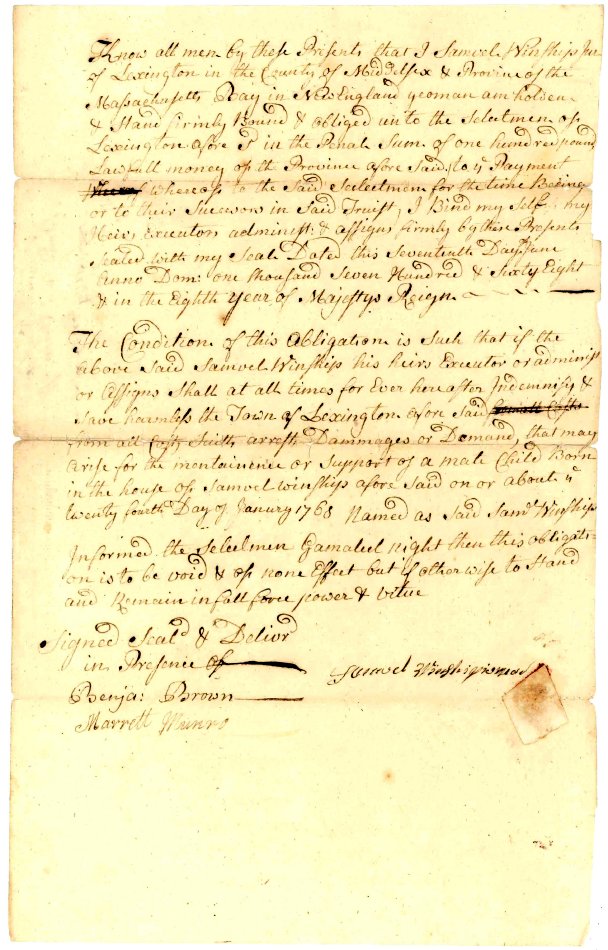 Know all men by these Presents that I Samuel Winship Jur
of Lexington in the County of Middlesex & Province of the
Massachusetts Bay in New England yeoman am holden
& Stand firmly Bound & obliged unto the Selectmen of
Lexington afore Sd in the Penal Sum of one hundred pound
Lawfull money of th Province afore Said, to ye Payment
whereof to the Said Selectmen for the time Beeing
or to their Successors in Said Trust, I Bind my Self my
Heirs Executors administ: & assigns firmly by these Presents
Sealed with my Seal Dated this Seventeenth Day June
Anno Dom: one thousand Seven Hundred & Sixty Eight
& in the Eighth year of Majestys Reign
The Condition of this Obligation is Such that if the
above Said Samuel Winship his heirs Executor or adminis
or assigns Shall at all times for Ever hereafter Indemnify &
Save harmless the Town of Lexington afore Said
from all Cost, Suits, arrests Dammages or Demand, that may
arise for the mentainence or Support of a male Child Born
in the house of Samuel Winship afore Said on or about ye
twenty fourth Day of Janury 1768 Named as Said Saml Winship
Informed the Selectmen Gamaliel night then this obligati-
on is to be void & of none Effect but if other wise to Stand
and Remain in full force power & virtue
Signed Seald & Deliverd
in Presence of
Samuel Winship
Benja: Brown
Marrett Munro